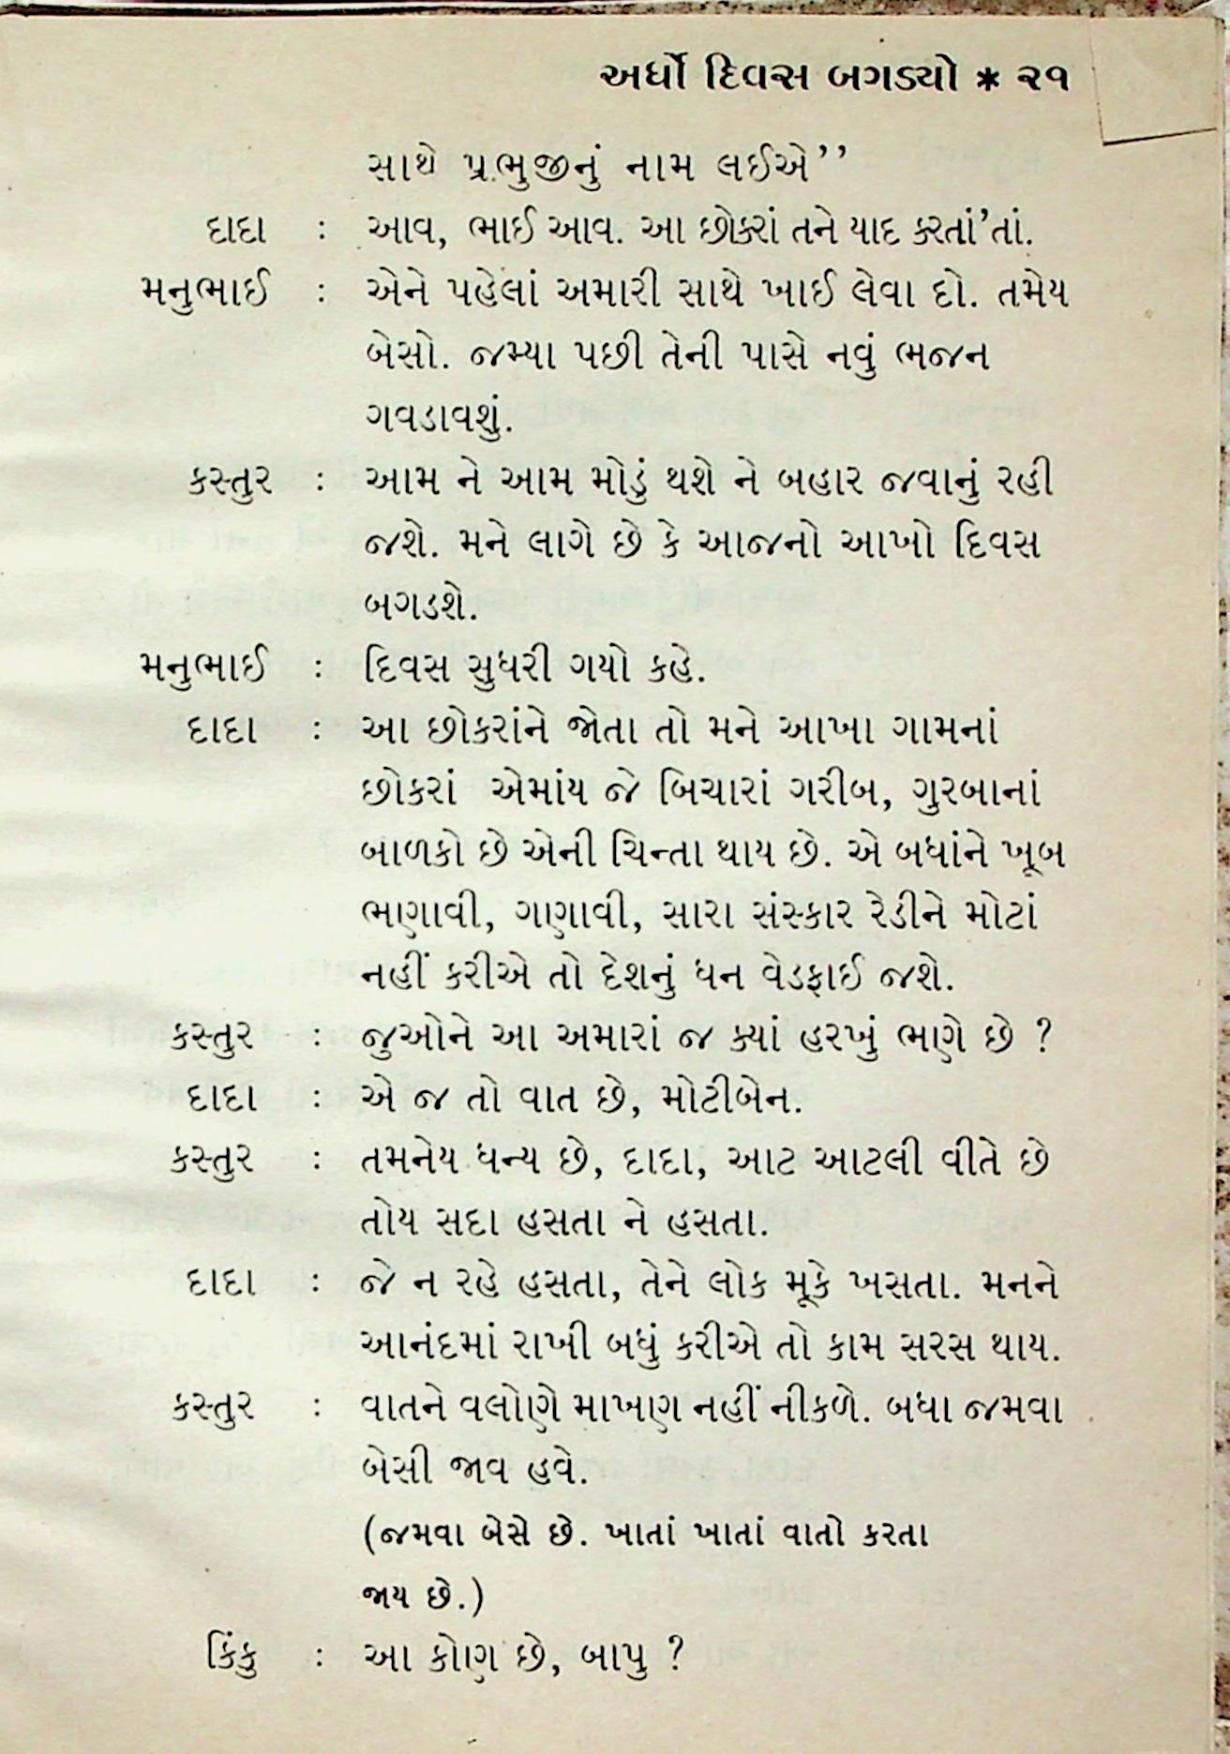 અર્ધો દિવસ બગડ્યો * ૨૧
સાથે પ્રભુજીનું નામ લઈએ’’
દાદા : આવ, ભાઈ આવ. આ છોકરાં તને યાદ કરતાં’તાં.
મનુભાઈ : એને પહેલાં અમારી સાથે ખાઈ લેવા દો. તમેય
બેસો. જમ્યા પછી તેની પાસે નવું ભજન
ગવડાવશું.
કસ્તુર : આમ ને આમ મોડું થશે ને બહાર જવાનું રહી
જશે. મને લાગે છે કે આજનો આખો દિવસ
બગડશે.
મનુભાઈ : દિવસ સુધરી ગયો કહે.
દાદા : આ છોકરાંને જોતા તો મને આખા ગામનાં
છોકરાં એમાંય જે બિચારાં ગરીબ, ગુરબાનાં
બાળકો છે એની ચિન્તા થાય છે. એ બધાંને ખૂબ
ભણાવી, ગણાવી, સારા સંસ્કાર રેડીને મોટાં
નહીં કરીએ તો દેશનું ધન વેડફાઈ જશે.
કસ્તુર : જુઓને આ અમારાં જ ક્યાં હરખું ભણે છે ?
દાદા : એ જ તો વાત છે, મોટીબેન.
કસ્તુર : તમનેય ધન્ય છે, દાદા, આટ આટલી વીતે છે
તોય સદા હસતા ને હસતા.
દાદા : જે ન રહે હસતા, તેને લોક મૂકે ખસતા. મનને
આનંદમાં રાખી બધું કરીએ તો કામ સરસ થાય.
કસ્તુર : વાતને વલોણે માખણ નહીં નીકળે. બધા જમવા
બેસી જાવ હવે.
(જમવા બેસે છે. ખાતાં ખાતાં વાતો કરતા
જાય છે.)
કિંકુ : આ કોણ છે, બાપુ ?